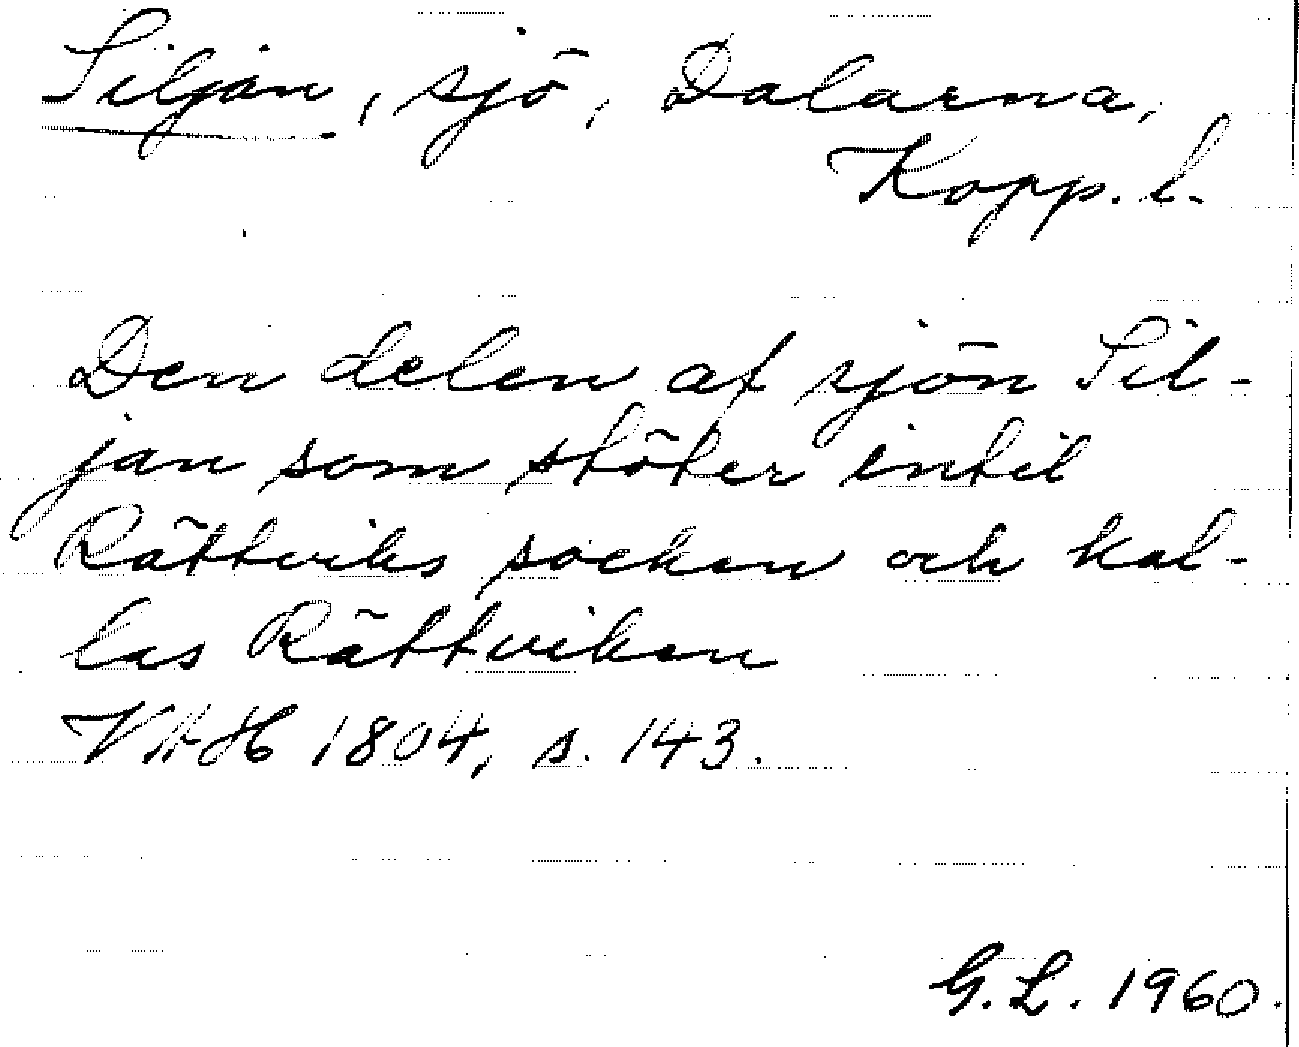 Siljan, sjö, Dalarna,
Kopp. l.
Den delen af sjön Sil-
jan som stöter intil
Rättviks socken och kal-
las Rättviken
VAH 1804, s. 143.
G. L. 1960.